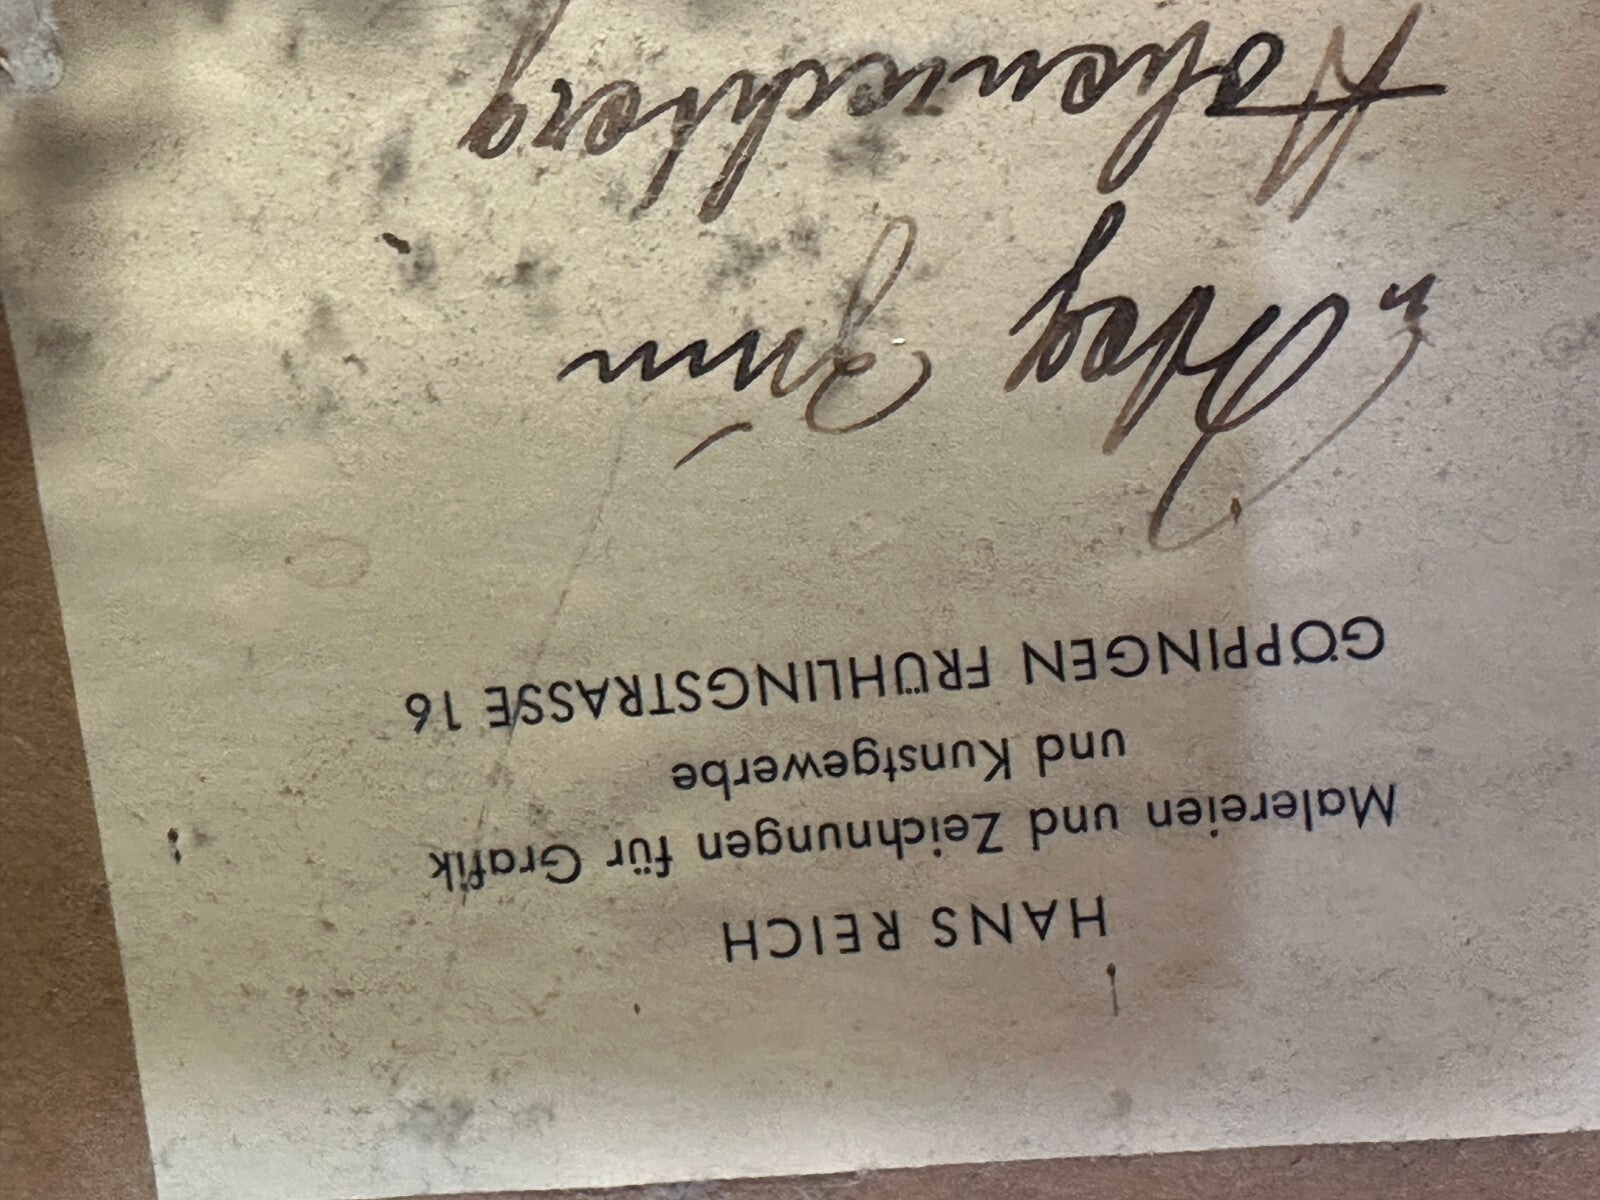 HANS REICH
Malereien und Zeichnungen für Grafik
und Kunstgewerbe
GÖPPINGEN FRÜHLINGSTRASSE 16
Weg zum
Hohenrechberg